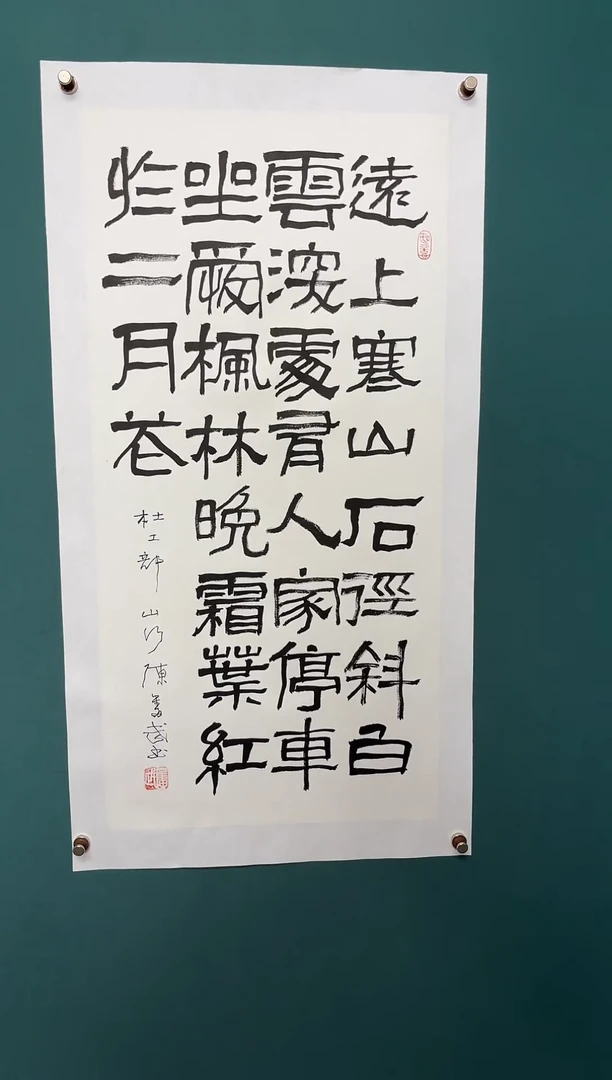 遠上寒山石徑斜白
雲深處有人家停車
坐愛楓林晚霜葉紅
於二月花
杜工部 山行 陳武书